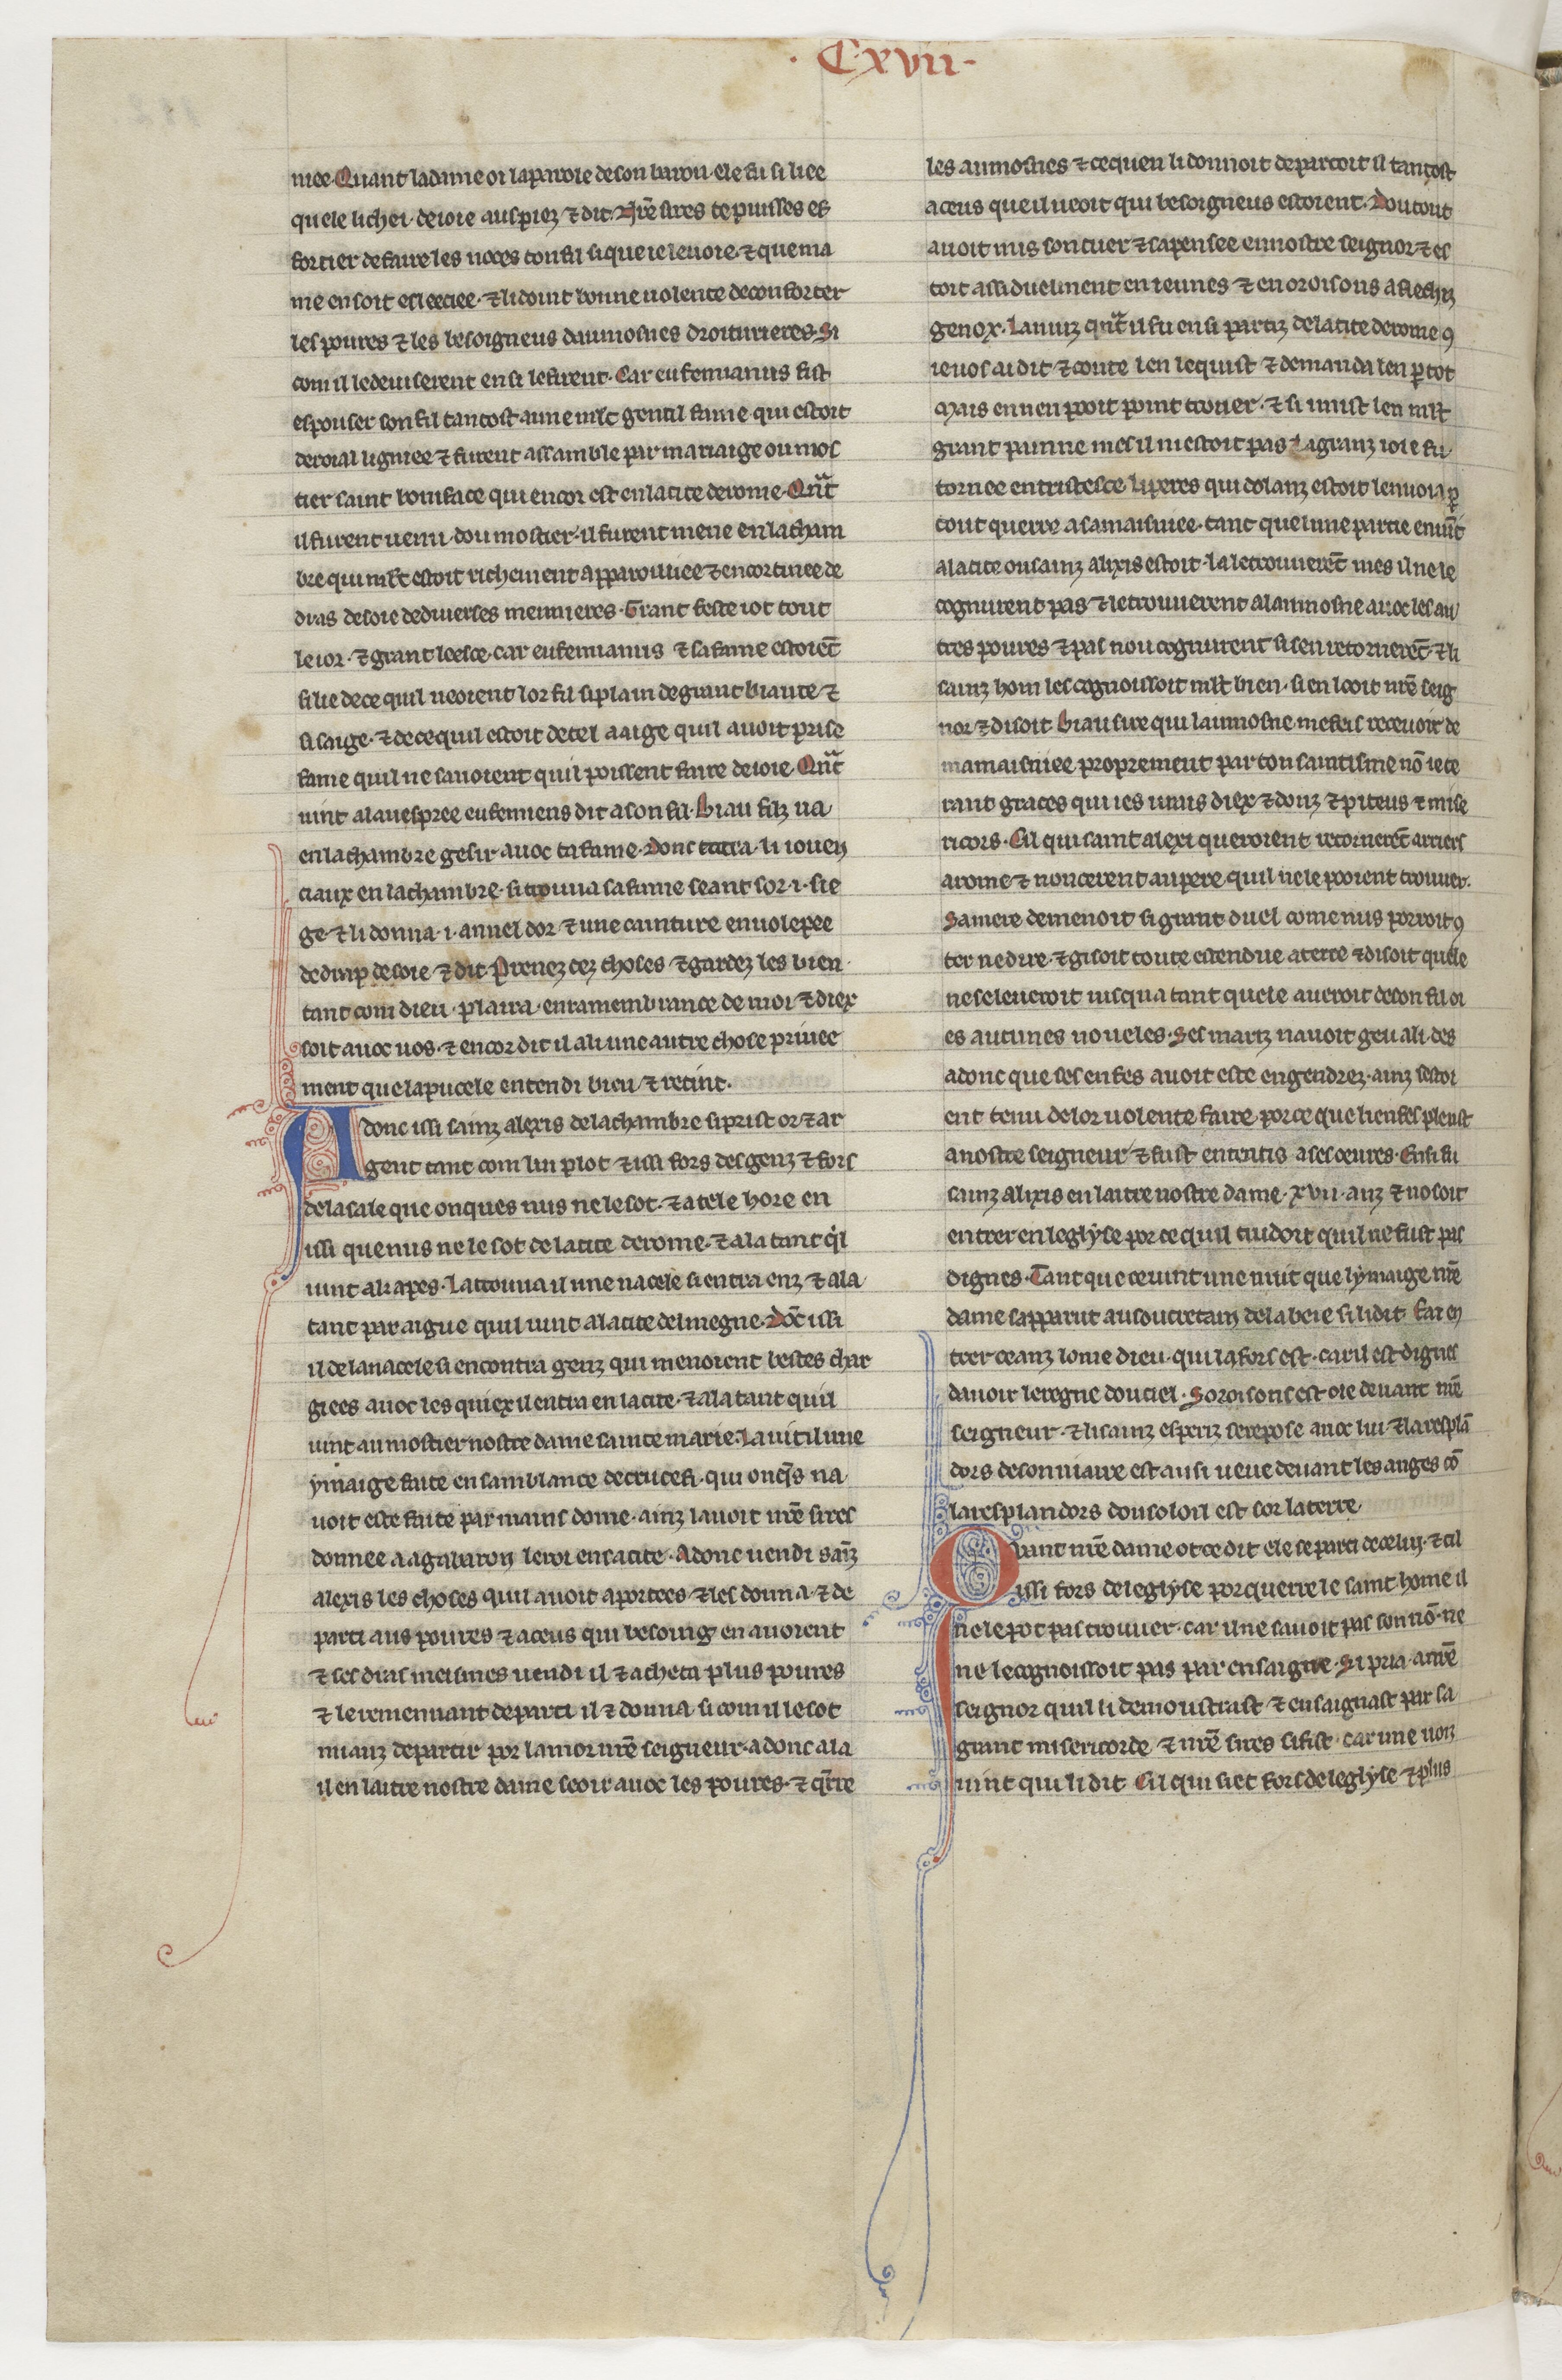 · Cxvii ·
niee. Quant la dame oi la parole de son baron. ele fu si liee
quele li chei. de ioie aus piez ⁊ dit. Nr̄e sires te puisses es
forcier de faire les noces ton fil si que ie le uoie. ⁊ que ma
me en soit esleeciee. ⁊ li doint bonne uolente de conforter
les poures ⁊ les besoigneus daumosnes droiturieres. Si
com il le deuiserent ensi le firent. Car eufemianus fist
espouser son fil tantost. a une ml̄t gentil fame qui estoit
de roial ligniee ⁊ furent assamble par mariaige ou mos
tier saint boniface qui encor est en la cite de rome. Qn̄t
il furent uenu. dou mostier. il furent mene en la cham
bre qui ml̄t estoit richement apparoilliee ⁊ encortinee de
dras de soie de diuerses mennieres. Grant feste i ot tout
le ior. ⁊ grant leesce. car eufemianus ⁊ sa fame estoiēt
si lie de ce quil ueoient lor fil si plain de grant biaute ⁊
si saige. ⁊ de ce quil estoit de tel aaige quil auoit prise
fame quil ne sauoient quil poissent faire de ioie. Qn̄t
uint a la uespree eufemiens dit a son fil. Biau filz ua
en la chambre gesir. auoc ta fame. Donc entra. li iouen
ciaux en la chambre. si trouua sa fame seant sor .i. sie
ge ⁊ li donna .i. annel dor ⁊ une ceinture enuolepee
de drap de soie ⁊ dit. Prenez cez choses ⁊ gardez les bien
tant com dieu. plaira. en ramembrance de moi ⁊ diex
soit auoc uos. ⁊ encor dit il a li une autre chose priuee
ment que la pucele entendi bien ⁊ retint.
Adonc issi sainz alexis de la chambre si prist or ⁊ ar
gent tant com lui plot ⁊ issi fors des genz ⁊ fors
de la sale que onques nus ne le sot. ⁊ a tele hore en
issi que nus ne le sot de la cite de rome. ⁊ ala tant qͥl
uint a liapes. La trouua il une nacele si entra enz ⁊ ala
tant par aigue quil uint a la cite delmegne. Dōc issi
il de la nacele si encontra genz qui menoient bestes char
giees auoc les quiex il entra en la cite. ⁊ ala tant quil
uint au mostier nostre dame sainte marie. La uit il une
ymaige faite en samblance de crucefi. qui onq̄s na
uoit este faite par mains dome. ainz lauoit nr̄e sires
donnee a agabaron le roi en sa cite. Adonc uendi saīz
alexis les choses quil auoit aportees ⁊ les donna. ⁊ de
parti aus poures ⁊ a ceus qui besoing en auoient
⁊ ses dras meismes uendi il ⁊ acheta plus poures
⁊ le remennant departi il ⁊ donna. si com il le sot
miauz departir por lamor nr̄e seigneur. adonc ala
il en laitre nostre dame seoir auoc les poures. ⁊ qr̄re
les aumosnes ⁊ ce quen li donnoit departoit il tantost
a ceus que il ueoit qui besoigneus estoient. Dou tout
auoit mis son cuer ⁊ sa pensee en nostre seignor ⁊ es
toit assiduelment en ieunes ⁊ en oroisons a flechiz
genox. La nuiz qn̄t il fu ensi partiz de la cite de rome ꝯ
ie uos ai dit ⁊ conte len le quist ⁊ demanda len ꝑ tot
Mais en nen pooit point trouer. ⁊ si i mist len ml̄t
grant painne mes il ni estoit pas. La granz ioie fu
tornee en tristesce. li peres qui dolanz estoit lenuoia ꝑ
tout querre a sa maisniee. tant que lune partie en uīt
a la cite ou sainz alixis estoit. la le trouuerēt mes il ne le
cognurent pas ⁊ le trouuerent a laumosne auoc les au
tres poures ⁊ pas nou cognurent si sen retornerēt. ⁊ li
sainz hom les cognoissoit ml̄t bien. si en looit nr̄e seig
nor ⁊ disoit. Biau sire qui laumosne me feis receuoir de
ma maisniee proprement par ton saintisme nō ie te
rant graces qui ies urais diex ⁊ douz ⁊ piteus ⁊ mise
ricors. Cil qui saint alexi queroient retornerēt arriers
a rome ⁊ noncerent au pere quil ne le pooient trouuer.
Sa mere demenoit si grant duel come nus porroit ꝯ
ter ne dire. ⁊ gisoit toute estendue a terre ⁊ disoit quele
ne se leueroit iusqua tant quele aueroit de son fil oi
es aucunes noueles. Ses mariz nauoit geu a li. des
adonc que ses enfes auoit este engendrez. ainz sestoi
ent tenu de lor uolente faire. por ce que li enfes pleust
a nostre seigneur ⁊ fust ententis a ses oeures. Ensi fu
sainz alixis en laitre nostre dame .xvii. anz ⁊ nosoit
entrer en leglyse por ce quil cuidoit quil ne fust pas
dignes. Tant que ce uint une nuit que lymaige nr̄e
dame sapparut au soucretain de labeie si li dit. Fai en
trer ceanz lome dieu. qui la fors est. car il est dignes
dauoir le regne dou ciel. Soroisons est oie deuant nr̄e
seigneur. ⁊ li sainz esperiz se repose auoc lui ⁊ la resplā
dors de son uiaire est ausi ueue deuant les anges cō
la resplandors dou soloil est sor la terre.
Quant nr̄e dame ot ce dit ele se parti de celui. ⁊ cil
issi fors de leglyse por querre le saint home il
ne le pot pas trouuer. car il ne sauoit pas son nō. ne
ne le cognoissoit pas par ensaigne. Si pria a nr̄e
seignor quil li demoustrast ⁊ ensaignast par sa
grant misericorde ⁊ nr̄e sires si fist. car une uoiz
uint qui li dit. Cil qui siet fors de leglyse ⁊ plus